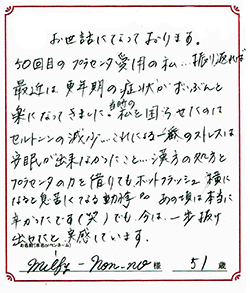 お世話になっております。
50回目のプラセンタ愛用の私…振り返れば
最近は更年期の症状がずいぶんと
楽になってきました。当時の私を困らせたのは
セルトニンの減少…これによる一番のストレスは
安眠が出来なかったこと…漢方の処方と
プラセンタの力を借りてもホットフラッシュ 横に
なると息苦しくなる動悸 あの頃は本当に
辛かったです(笑)でも今は、一歩抜け
出せたと実感しています。
お名前(本名かペンネーム)
Milfy-Non-no 様 51歳